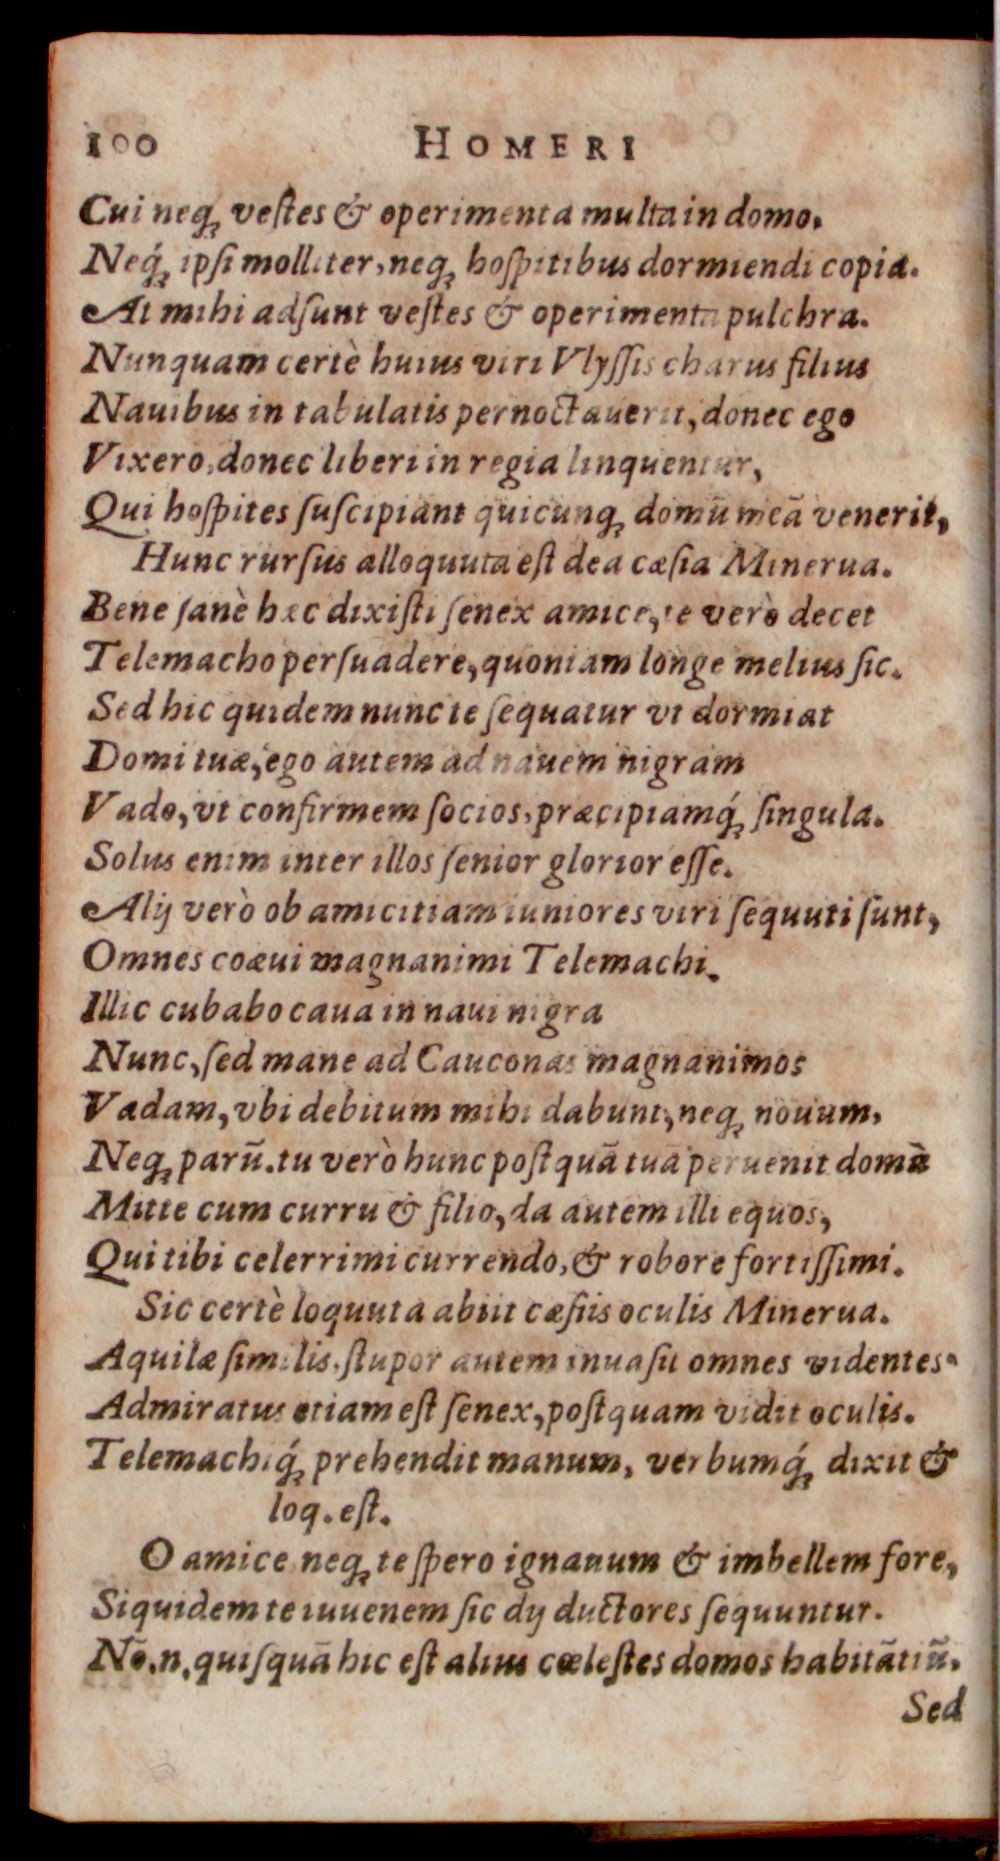 100 HOMERI
Cui neq́ꝫ vestes & operimenta multa in domo,
Neq́ꝫ ipsi molliter, neqꝫ hospitibus dormiendi copia.
At mihi adsunt vestes & operimenta pulchra.
Nunquam certè huius viri Vlyssis charus filius
Nauibus in tabulatis pernoctauerit, donec ego
Vixero, donec liberi in regia linquentur,
Qui hospites suscipiant quicunqꝫ domũ meã venerit,
Hunc rursus alloquuta est dea cæsia Minerua.
Bene sanè hæc dixisti senex amice, te verò decet
Telemacho persuadere, quoniam longe melius sic.
Sed hic quidem nunc te sequatur vt dormiat
Domi tuæ, ego autem ad nauem nigram
Vado, vt confirmem socios, præcipiamq́ꝫ singula.
Solus enim inter illos senior glorior esse.
Alij verò ob amicitiam iuniores viri sequuti sunt,
Omnes coæui magnanimi Telemachi.
Illic cubabo caua in naui nigra
Nunc, sed mane ad Cauconas magnanimos
Vadam, vbi debitum mihi dabunt, neqꝫ nouum,
Neqꝫ parũ. tu verò hunc postquã tuã peruenit domũ
Mitte cum curru & filio, da autem illi equos,
Qui tibi celerrimi currendo, & robore fortissimi.
Sic certè loquuta abiit cæsiis oculis Minerua.
Aquilæ similis, stupor autem inuasit omnes videntes.
Admiratus etiam est senex, postquam vidit oculis.
Telemachiq́ꝫ prehendit manum, verbumq́ꝫ dixit &
loq. est.
O amice neqꝫ te spero ignauum & imbellem fore,
Siquidem te iuuenem sic dij ductores sequuntur.
Nõ. n. quisquã hic est alius cœlestes domos habitãtiũ.
Sed